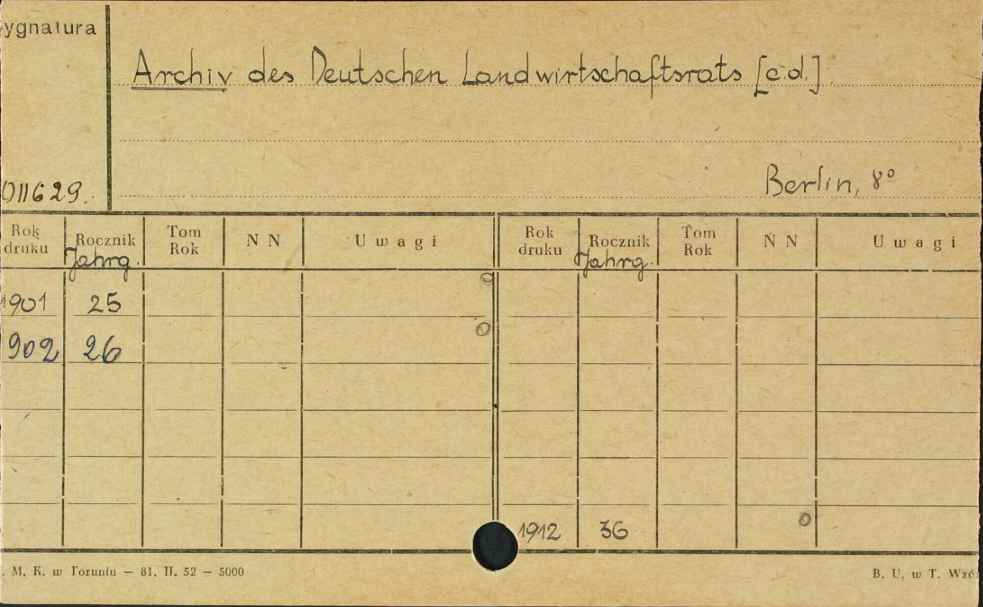 ygnatura
Archiv des Deutschen Landwirtschaftsrats [c.d.].
011629.
Berlin, 8°
Rok druku Rocznik Tom Rok N N Uwagi Rok druku Rocznik Tom Rok N N Uwagi
Jahrg. Jahrg.
1901 25
1902 26
1912 36
. M. K. w Toruniu — 81. II. 52 — 5000
B. U. w T. Wzó